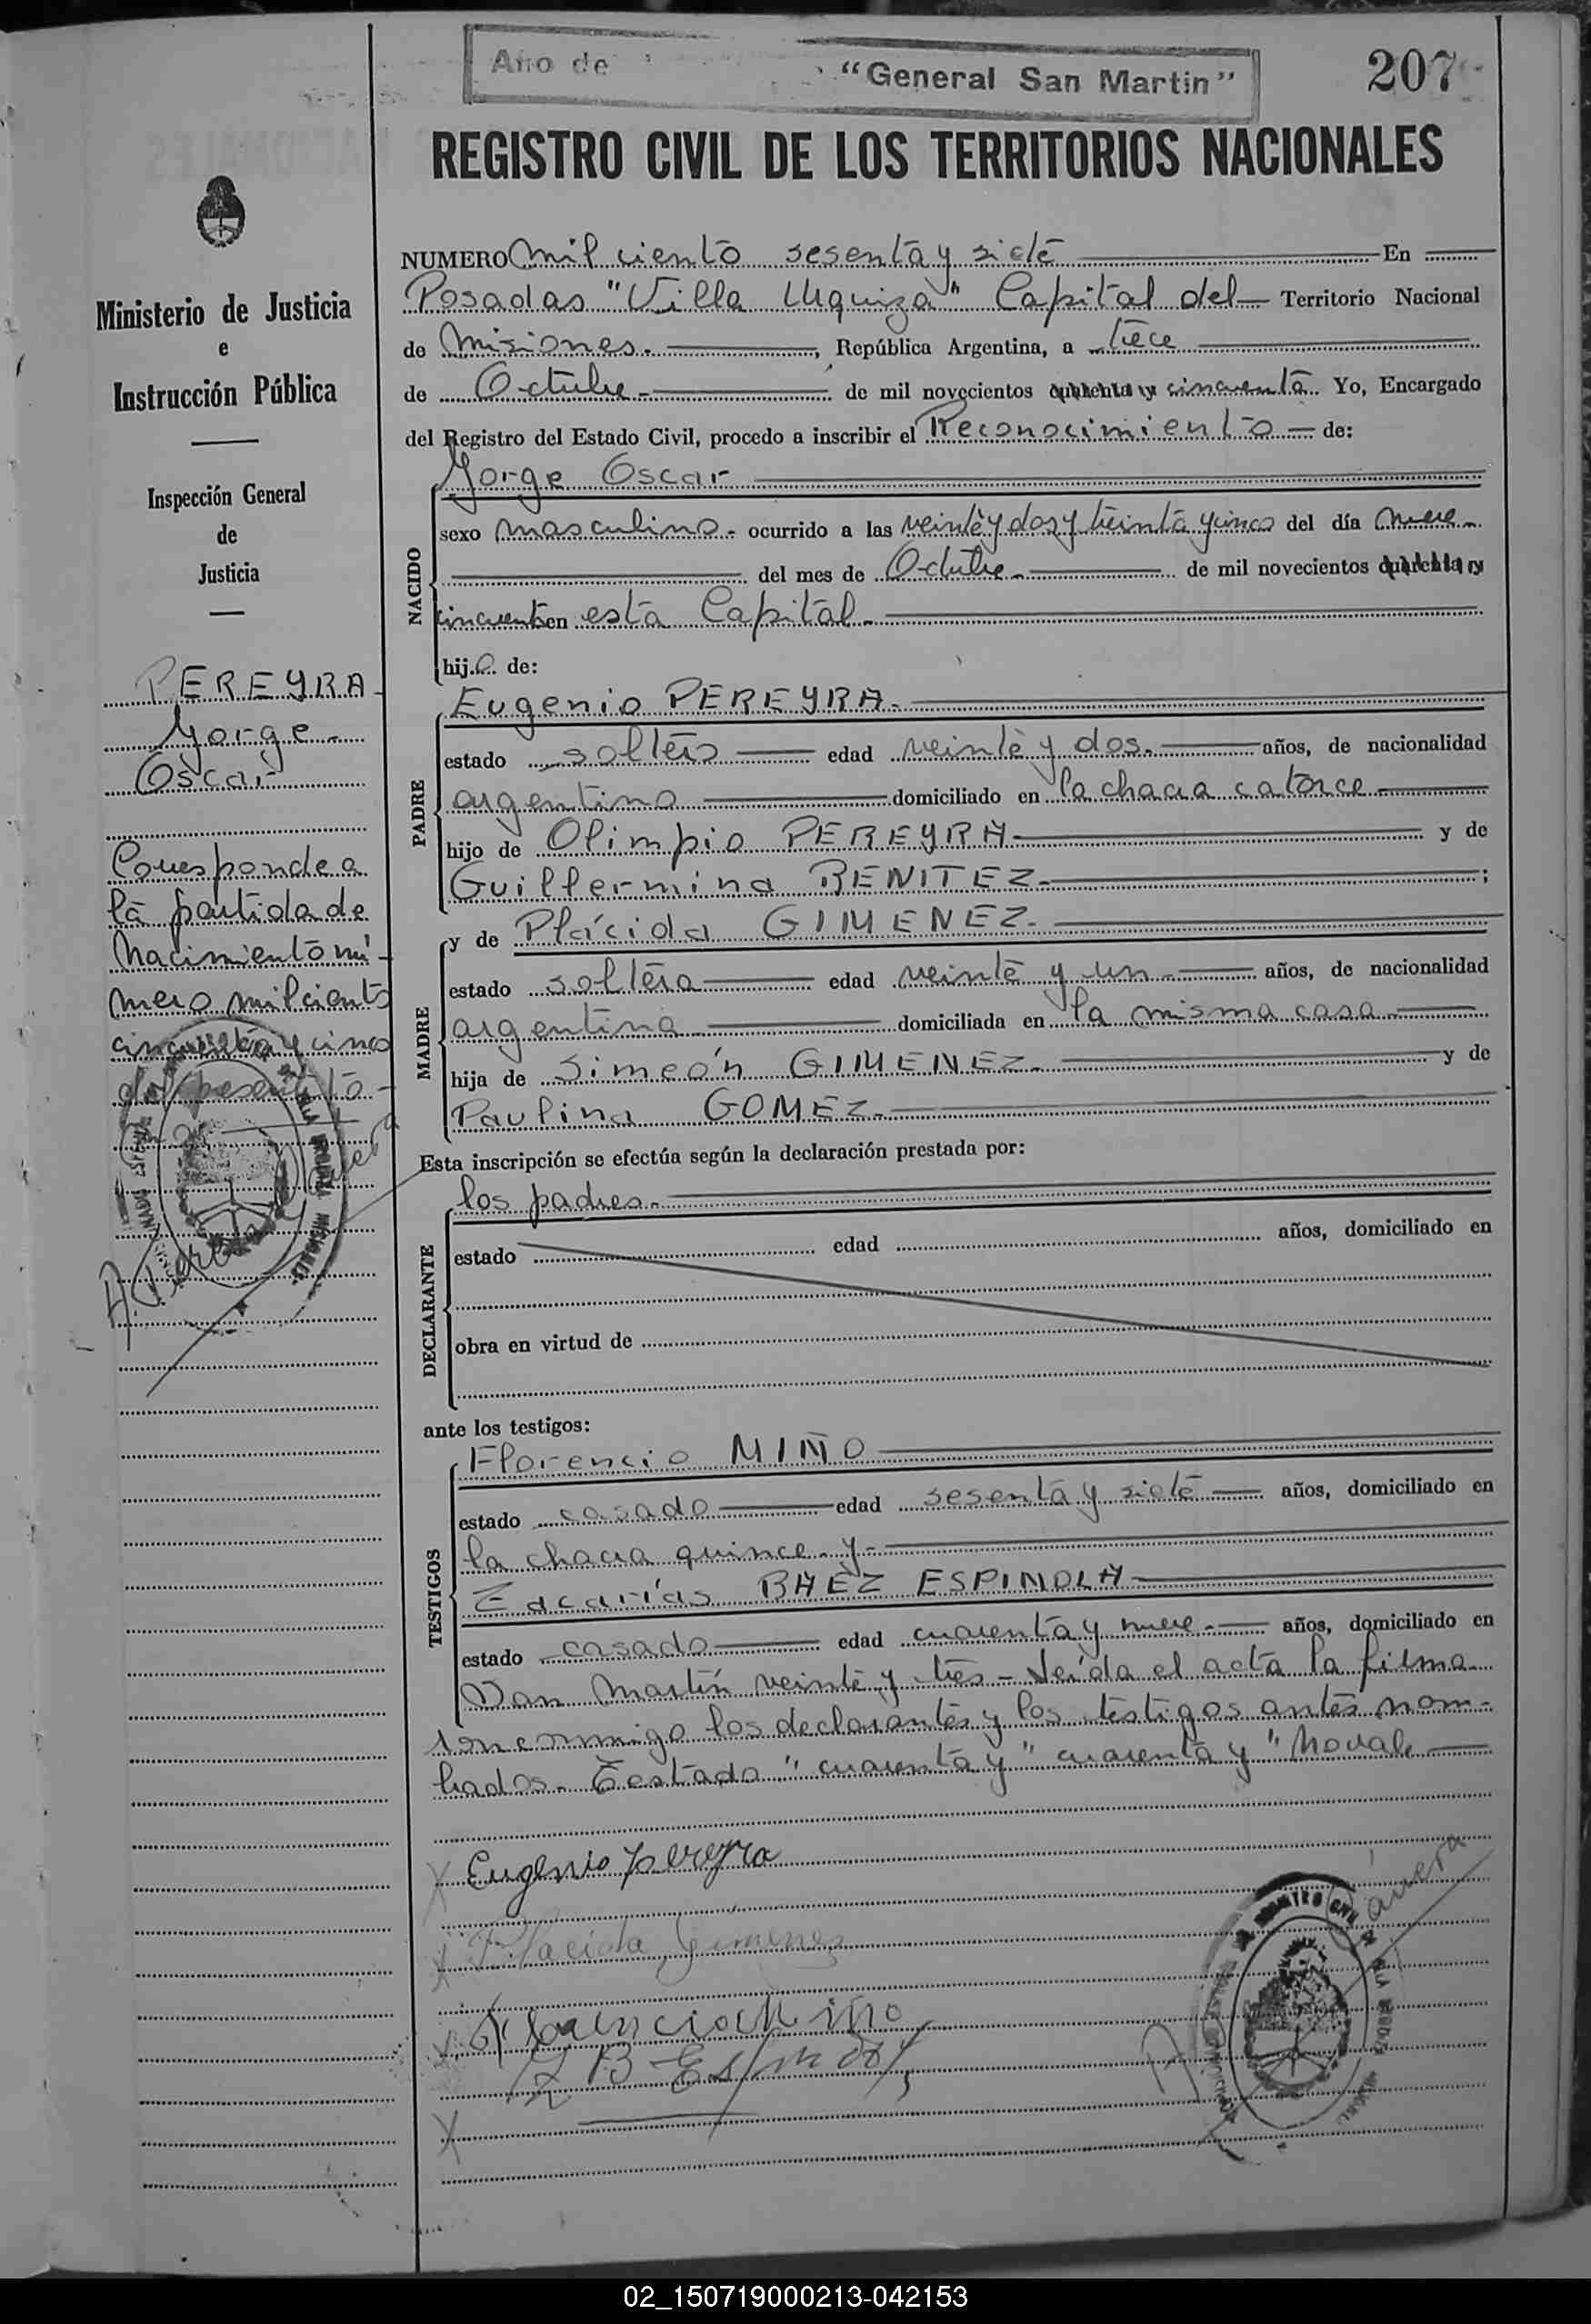 Año de "General San Martin"
207
REGISTRO CIVIL DE LOS TERRITORIOS NACIONALES
Ministerio de Justicia
e
Instrucción Pública
Inspección General
de
Justicia
PEREYRA
Jorge
Oscar
Corresponde a
la partida de
Nacimiento nú-
mero mil ciento
cincuenta y cinco
NUMERO mil ciento sesenta y siete En
Posadas "Villa Urquiza" Capital del Territorio Nacional
de Misiones. , República Argentina, a trece
de Octubre de mil novecientos cuarenta y cincuenta Yo, Encargado
del Registro del Estado Civil, procedo a inscribir el Reconocimiento de:
Jorge Oscar
NACIDO
sexo masculino ocurrido a las veinte y dos y treinta y cinco del día nueve
del mes de Octubre de mil novecientos cuarenta y
cincuenta en esta Capital.
hijo de:
PADRE
Eugenio PEREYRA.
estado soltero edad veinte y dos. años, de nacionalidad
argentino domiciliado en la chacra catorce
hijo de Olimpio PEREYRA y de
Guillermina BENITEZ. ;
MADRE
y de Plácida GIMENEZ.
estado soltera edad veinte y un años, de nacionalidad
argentina domiciliada en la misma casa
hija de Simeón GIMENEZ. y de
Paulina GOMEZ.
Esta inscripción se efectúa según la declaración prestada por:
DECLARANTE
los padres.
estado edad años, domiciliado en
obra en virtud de
ante los testigos:
TESTIGOS
Florencio MIÑO
estado casado edad sesenta y siete años, domiciliado en
la chacra quince y
Zacarías BAEZ ESPINDLA
estado casado edad cuarenta y nueve. años, domiciliado en
San Martín veinte y tres - Leída el acta la firma
ron conmigo los declarantes y los testigos antes nom-
brados. Testado "cuarenta y" cuarenta y "No vale
Eugenio Pereyra
Placida Gimenez
Florencio Miño
Z B Espindola
02_150719000213-042153